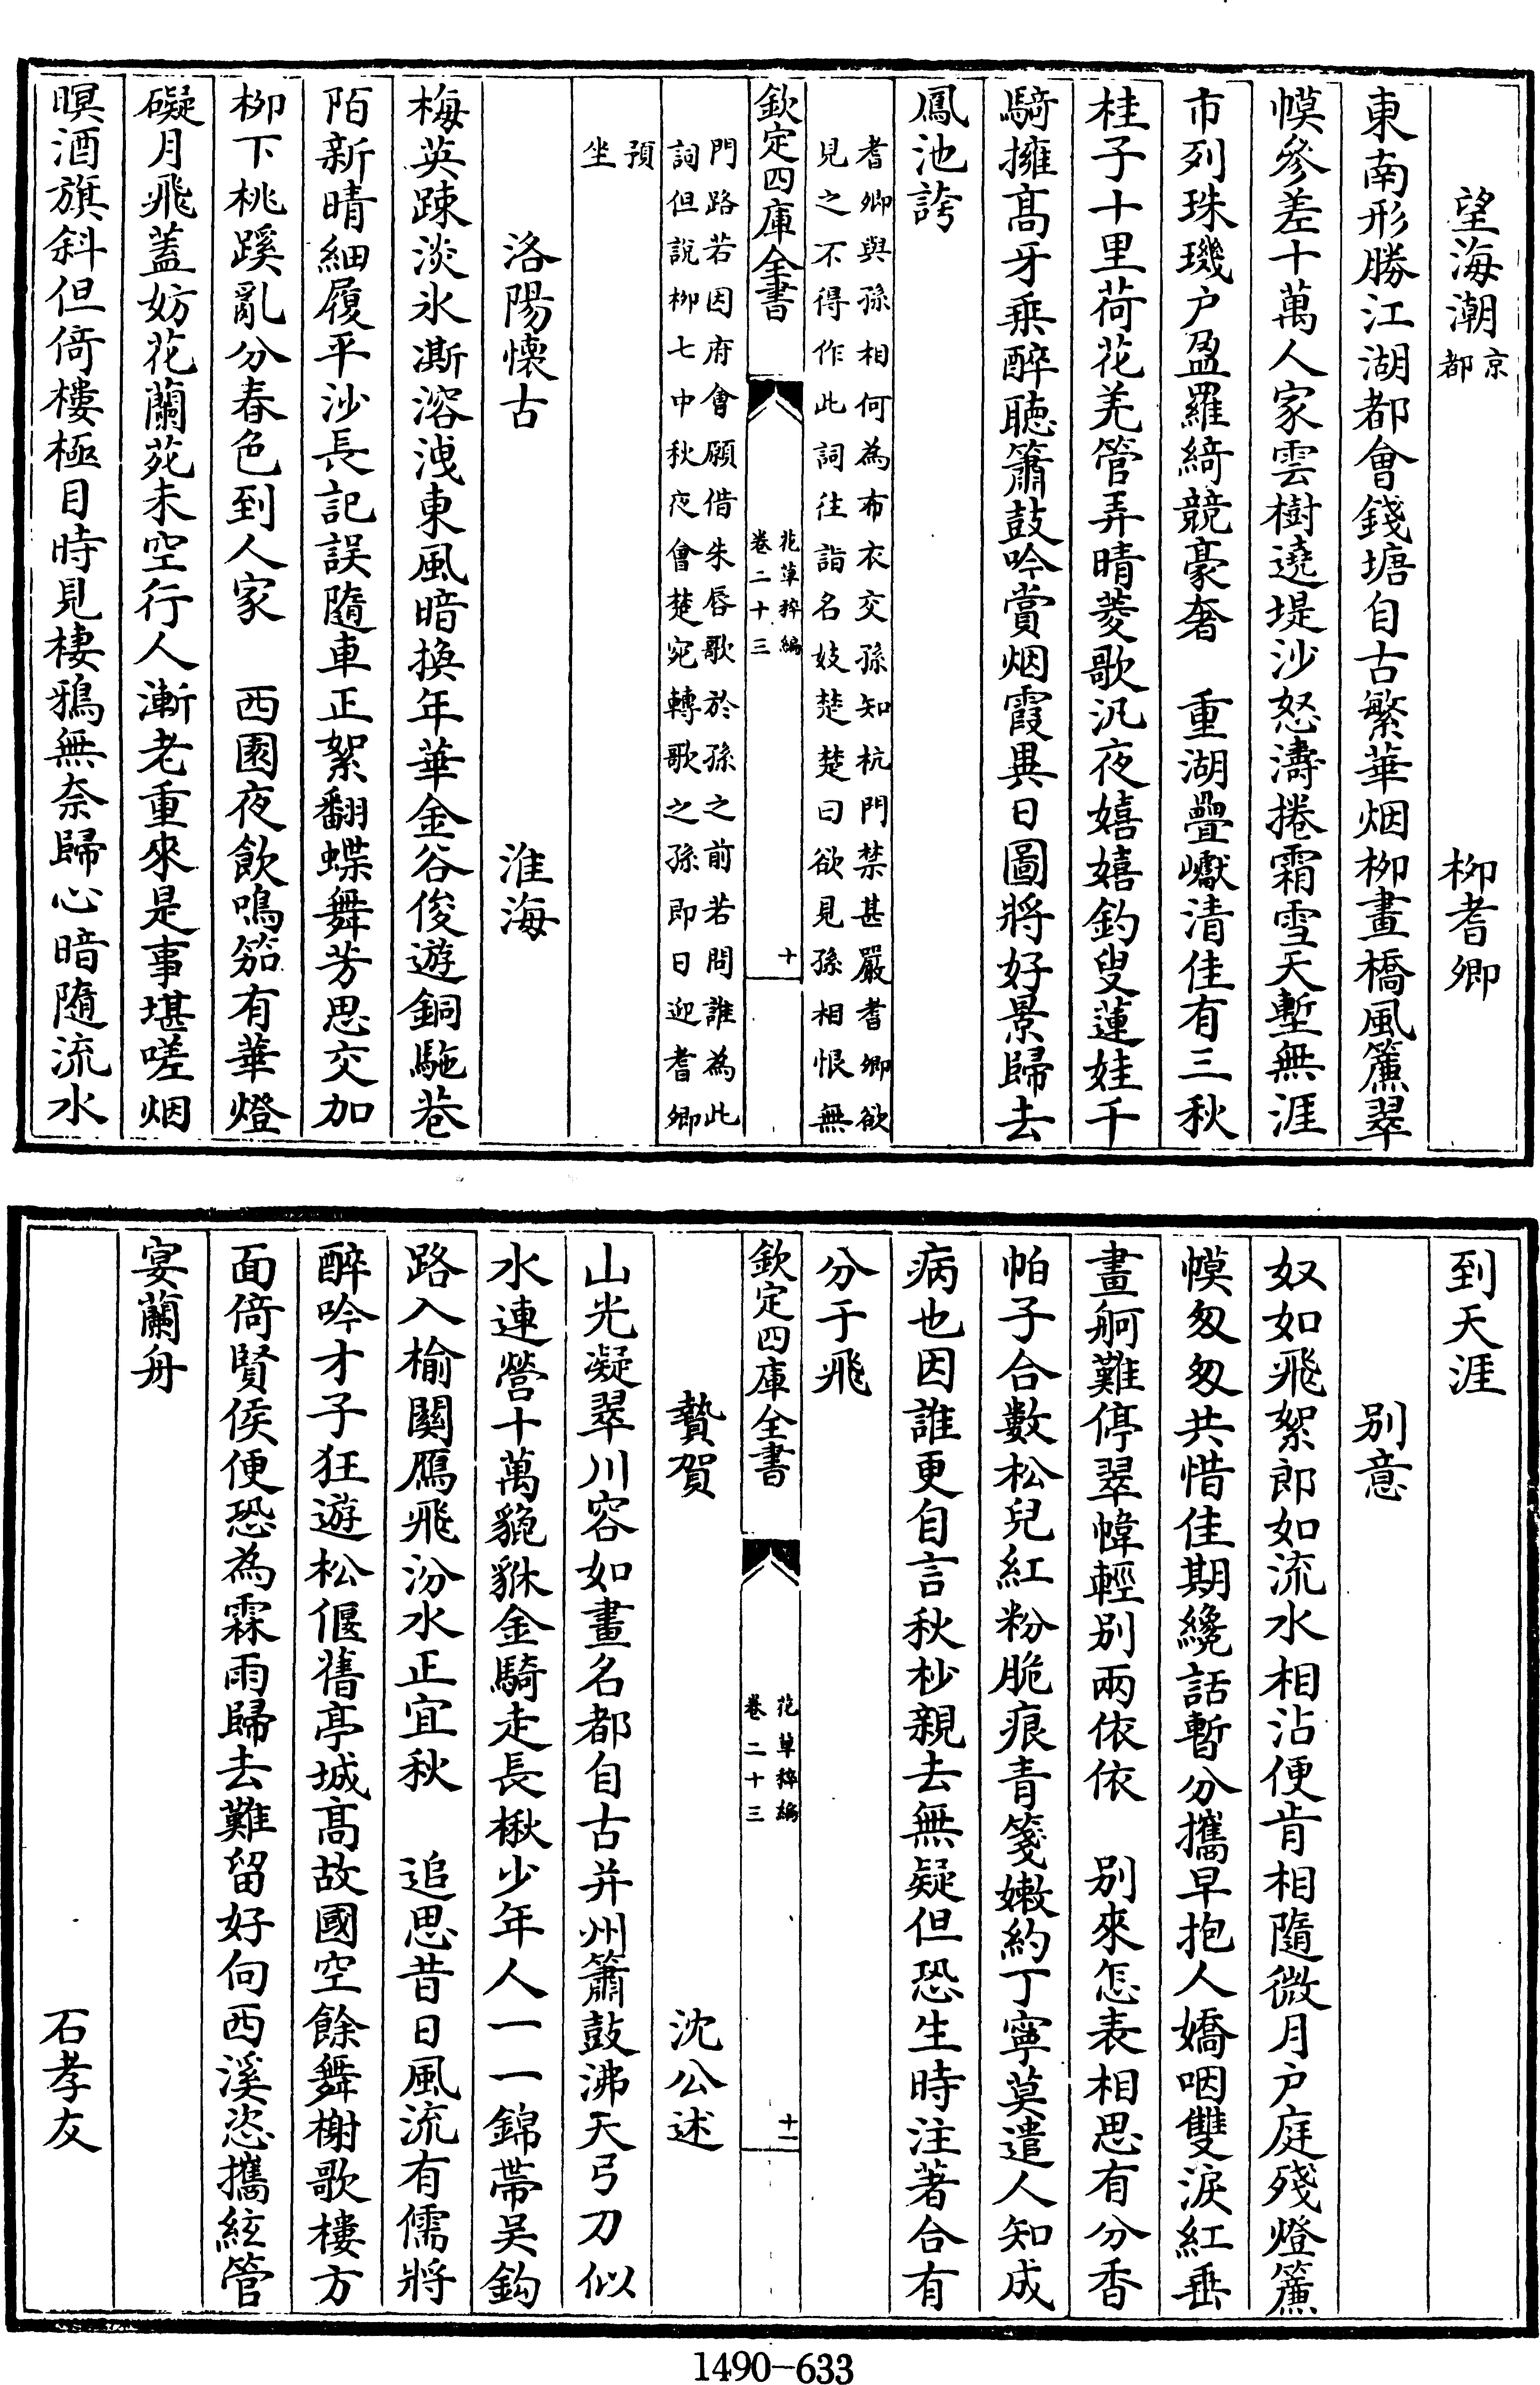 望海潮京都　柳耆卿
東南形勝江湖都會錢塘自古繁華烟柳畫橋風簾翠
幙參差十萬人家雲樹遶堤沙怒濤捲霜雪天塹無涯
市列珠璣户盈羅綺競豪奢　重湖疊巘清佳有三秋
桂子十里荷花羌管弄晴菱歌汎夜嬉嬉釣叟蓮娃千
騎擁髙牙乗醉聴簫鼓吟賞烟霞異日圖將好景歸去
鳳池誇
耆卿與孫相何為布衣交孫知杭門禁甚嚴耆卿欲
見之不得作此詞往詣名妓楚楚曰欲見孫相恨無
欽定四庫全書
花草稡編
卷二十三
十
門路若因府會願借朱唇歌於孫之前若問誰為此
詞但說柳七中秋夜會楚宛轉歌之孫即日迎耆卿
預
坐
洛陽懷古　淮海
梅英踈淡氷澌溶洩東風暗換年華金谷俊遊銅駞巷
陌新晴細履平沙長記誤隨車正絮翻蝶舞芳思交加
柳下桃蹊亂分春色到人家　西園夜飲鳴笳有華燈
礙月飛蓋妨花蘭苑未空行人漸老重來是事堪嗟烟
暝酒旗斜但倚樓極目時見棲鴉無奈歸心暗隨流水
到天涯
别意
奴如飛絮郎如流水相沾便肯相隨微月户庭殘燈簾
幙匆匆共惜佳期纔話暫分攜早抱人嬌咽雙淚紅垂
畫舸難停翠幃輕别兩依依　别來怎表相思有分香
帕子合數松兒紅粉脆痕青箋嫩約丁寧莫遣人知成
病也因誰更自言秋杪親去無疑但恐生時注著合有
分于飛
欽定四庫全書
花草稡編
卷二十三
十一
贄賀　沈公述
山光凝翠川容如畫名都自古并州簫鼓沸天弓刀似
水連營十萬貔貅金騎走長楸少年人一一錦帶吴鈎
路入榆關鴈飛汾水正宜秋　追思昔日風流有儒將
醉吟才子狂遊松偃舊亭城髙故國空餘舞榭歌樓方
面倚賢侯便恐為霖雨歸去難留好向西溪恣攜絃管
宴蘭舟
石孝友
1490-633